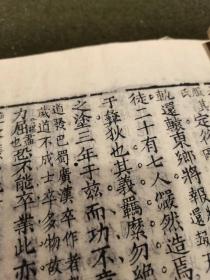 其定後
軌還轅東鄉將報
徒二十有七人儼然造焉
于夷狄也其義羈縻勿絕
之塗三年于茲而功不竟
道發巴蜀廣漢卒作者
歲道不成士卒多物故
力屈恐不能卒業此亦